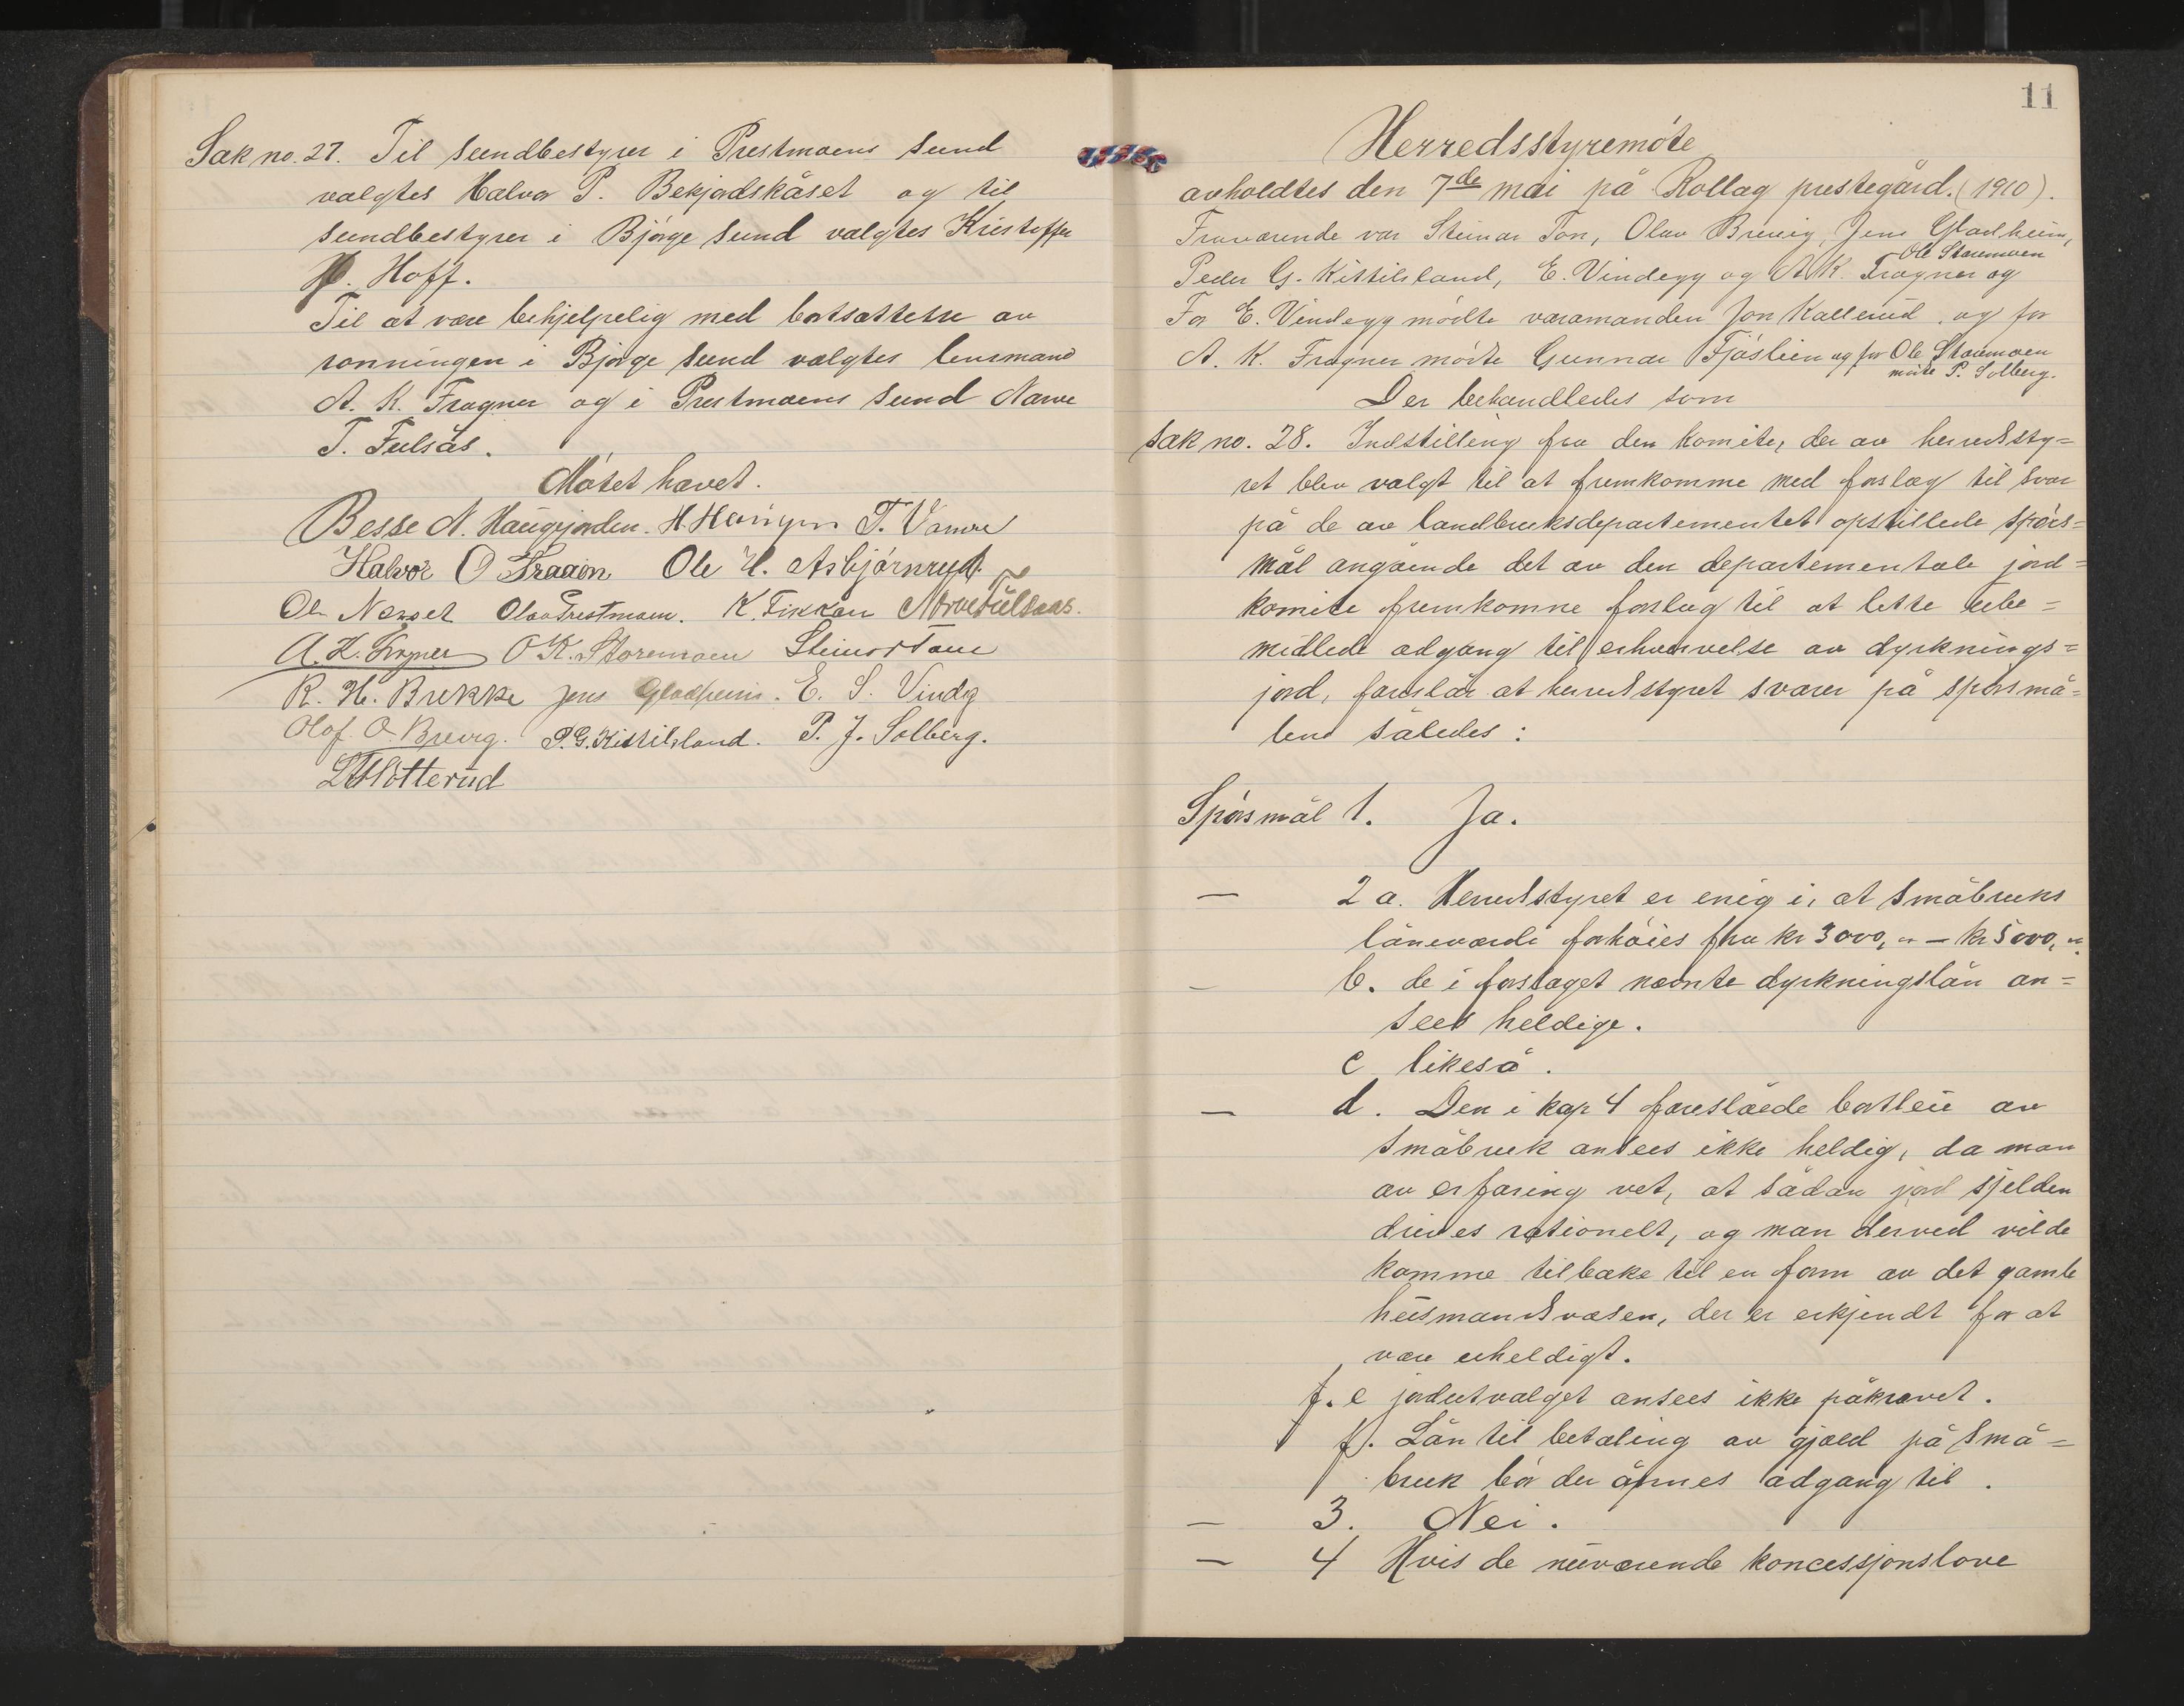 Sak no. 27. Til sundbestyrer i Prestmoens sund
valgtes Halvor P. Bekjordskåset og til
sundbestyrer i Bjørge sund valgtes Kristoffer
H. Hoff.
Til at være behjelpelig med bortsættelse av
ronningen i Bjørge sund valgtes lensmand
A. K. Fragner og i Prestmoens sund Narve
T. Fulsås.
Møtet hævet.
Besse N. Haugjorden. H Haugen T. Vamre
Halvor O Traaen Ole H. Asbjørnryd.
Ole Nesset Olav Prestmoen. K. Fikkan Narve Fulsaas.
A. K. Fragner O K. Storemoen Steinar Ton
R. H. Brekke Jens Gladheim. E. S. Vindeg
Olaf. O. Brevig. P. G. Kittilsland. P. J. Solberg.
Slotterud
11
Herredsstyremøte
avholdtes den 7de mai på Rollag prestegård. (1910).
Fraværende var Steinar Ton, Olav Brevig, Jens Gladheim,
Peder G. Kittilsland, E. Vindegg og A. K. Fragner og Ole Storemoen
For E. Vindegg mødte varamanden Jon Kallerud, og for
A. K. Fragner møtte Gunnar Fjøslien og for Ole Storemoen
møtte P. Solberg.
Der behandledes som
Sak no. 28. Indstilling fra den komite, der av herredsty=
ret blev valgt til at fremkomme med forslag til svar
på de av landbruksdepartementet opstillede spørs=
mål angående det av den departementale jord=
komite fremkomne forslag til at lette ube=
midlede adgang til erhvervelse av dyrknings=
jord, foreslår at herredstyret svarer på spørsmå=
lene således:
Spørsmål 1. Ja.
— 2 a. Herredstyret er enig i, at småbruks
låneværdi forhøies fra kr 3000,00 — kr 5000,00.
— b. de i forslaget nævnte dyrkningslån an=
sees heldige.
c likeså.
— d. Den i kap 4 foreslåede bortleie av
småbruk ansees ikke heldig, da man
av erfaring vet, at sådan jord sjelden
drives rationelt, og man derved vilde
komme tilbake til en form av det gamle
husmandsvæsen, der er erkjendt for at
være uheldigt.
f. e jordutvalget ansees ikke påkrævet.
f. Lån til betaling av gjæld på små=
bruk bør der åpnes adgang til.
— 3. Nei.
— 4 Hvis de nuværende koncessjonslove